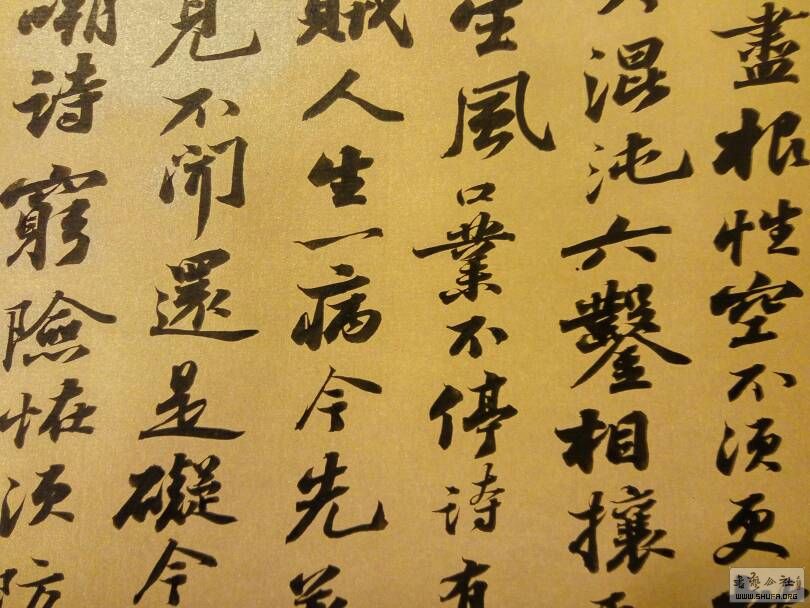 盡根性空不須更
混沌六鑿相攘
生風口業不停詩有
賊人生一病今先
見不聞還是礙今
嘲詩窮險怪須防
WWW.SHUFA.ORG